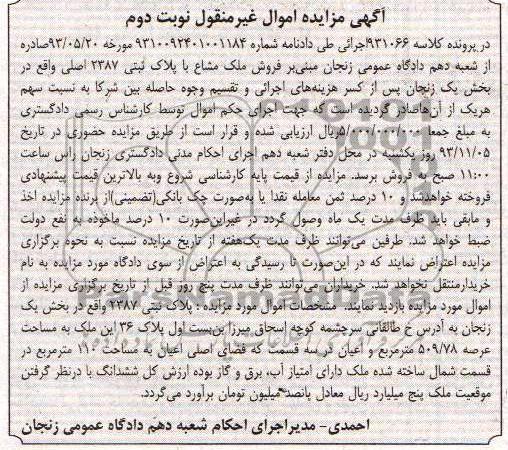 آگهی مزایده اموال غیرمنقول نوبت دوم
در پرونده کلاسه ۹۳۱۰۶۶اجرائی طی دادنامه شماره ۹۳۱۰۰۹۲۴۰۱۰۰۱۱۸۴ مورخه ۹۳/۰۵/۲۰صادره
از شعبه دهم دادگاه عمومی زنجان مبنی‌بر فروش ملک مشاع با پلاک ثبتی ۲۳۸۷ اصلی واقع در
بخش یک زنجان پس از کسر هزینه‌های اجرائی و تقسیم وجوه حاصله بین شرکا به نسبت سهم
هریک از آن‌هاصادر گردیده است که جهت اجرای حکم اموال توسط کارشناس رسمی دادگستری
به مبلغ جمعا ۵/۰۰۰/۰۰۰/۰۰۰ریال ارزیابی شده و قرار است از طریق مزایده حضوری در تاریخ
۹۳/۱۱/۰۵ روز یکشنبه در محل دفتر شعبه دهم اجرای احکام مدنی دادگستری زنجان راس ساعت
۱۱:۰۰ صبح به فروش برسد. مزایده از قیمت پایه کارشناسی شروع وبه بالاترین قیمت پیشنهادی
فروخته خواهدشد و ۱۰ درصد ثمن معامله نقدا یا به‌صورت چک بانکی(تضمینی)از برنده مزایده اخذ
و مابقی باید ظرف مدت یک ماه وصول گردد در غیراین‌صورت ۱۰ درصد ماخوذه به نفع دولت
ضبط خواهد شد. طرفین می‌توانند ظرف مدت یک‌هفته از تاریخ مزایده نسبت به نحوه برگزاری
مزایده اعتراض نمایند که در این‌صورت تا رسیدگی به اعتراض از سوی دادگاه مورد مزایده به نام
خریدارمنتقل نخواهد شد. خریداران می‌توانند ظرف مدت پنج روز قبل از تاریخ برگزاری مزایده از
اموال مورد مزایده بازدید نمایند. مشخصات اموال مورد مزایده : پلاک ثبتی ۲۳۸۷ واقع در بخش یک
زنجان به آدرس خ طالقانی سرچشمه کوچه اسحاق میرزابن‌بست اول پلاک ۳۶ این ملک به مساحت
عرصه ۵۰۹/۷۸ مترمربع و اعیان در سه قسمت که فضای اصلی اعیان به مساحت ۱۱۰ مترمربع در
قسمت شمال ساخته شده ملک دارای امتیاز آب، برق و گاز بوده ارزش کل ششدانگ با درنظر گرفتن
موقعیت ملک پنج میلیارد ریال معادل پانصد میلیون تومان برآورد می‌گردد.
احمدی- مدیراجرای احکام شعبه دهم دادگاه عمومی زنجان